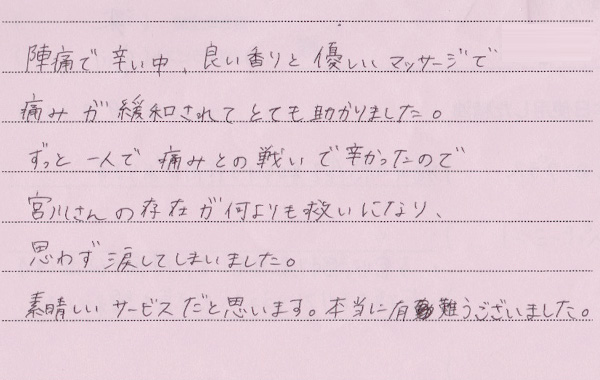 陣痛で辛い中、良い香りと優しいマッサージで
痛みが緩和されてとても助かりました。
ずっと一人で痛みとの戦いで辛かったので
宮川さんの存在が何よりも救いになり、
思わず涙してしまいました。
素晴しいサービスだと思います。本当に有難うございました。